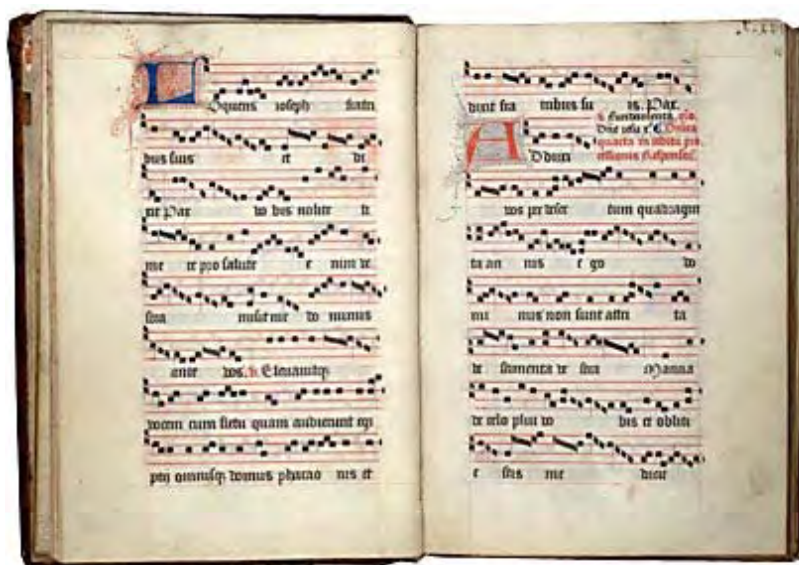 Loquens ioseph fratri
bus suis et di
xit Pax vo bis nolite ti
me re pro salute e nim ve
stra misit me do minus
ante vos. v. Eleuauitqz
vocem cum fletu quam audierunt egi
ptij omnisqz domus pharao nis et
dixit fra tribus su is. Pax.
Dominica
quarta
A Dduxi
vos per deser tum quadragin
ta an nis e go do
mi nus non sunt attri ta
ve stimenta ve stra Manna
de celo plui vo bis et obliti
e stis me dicit